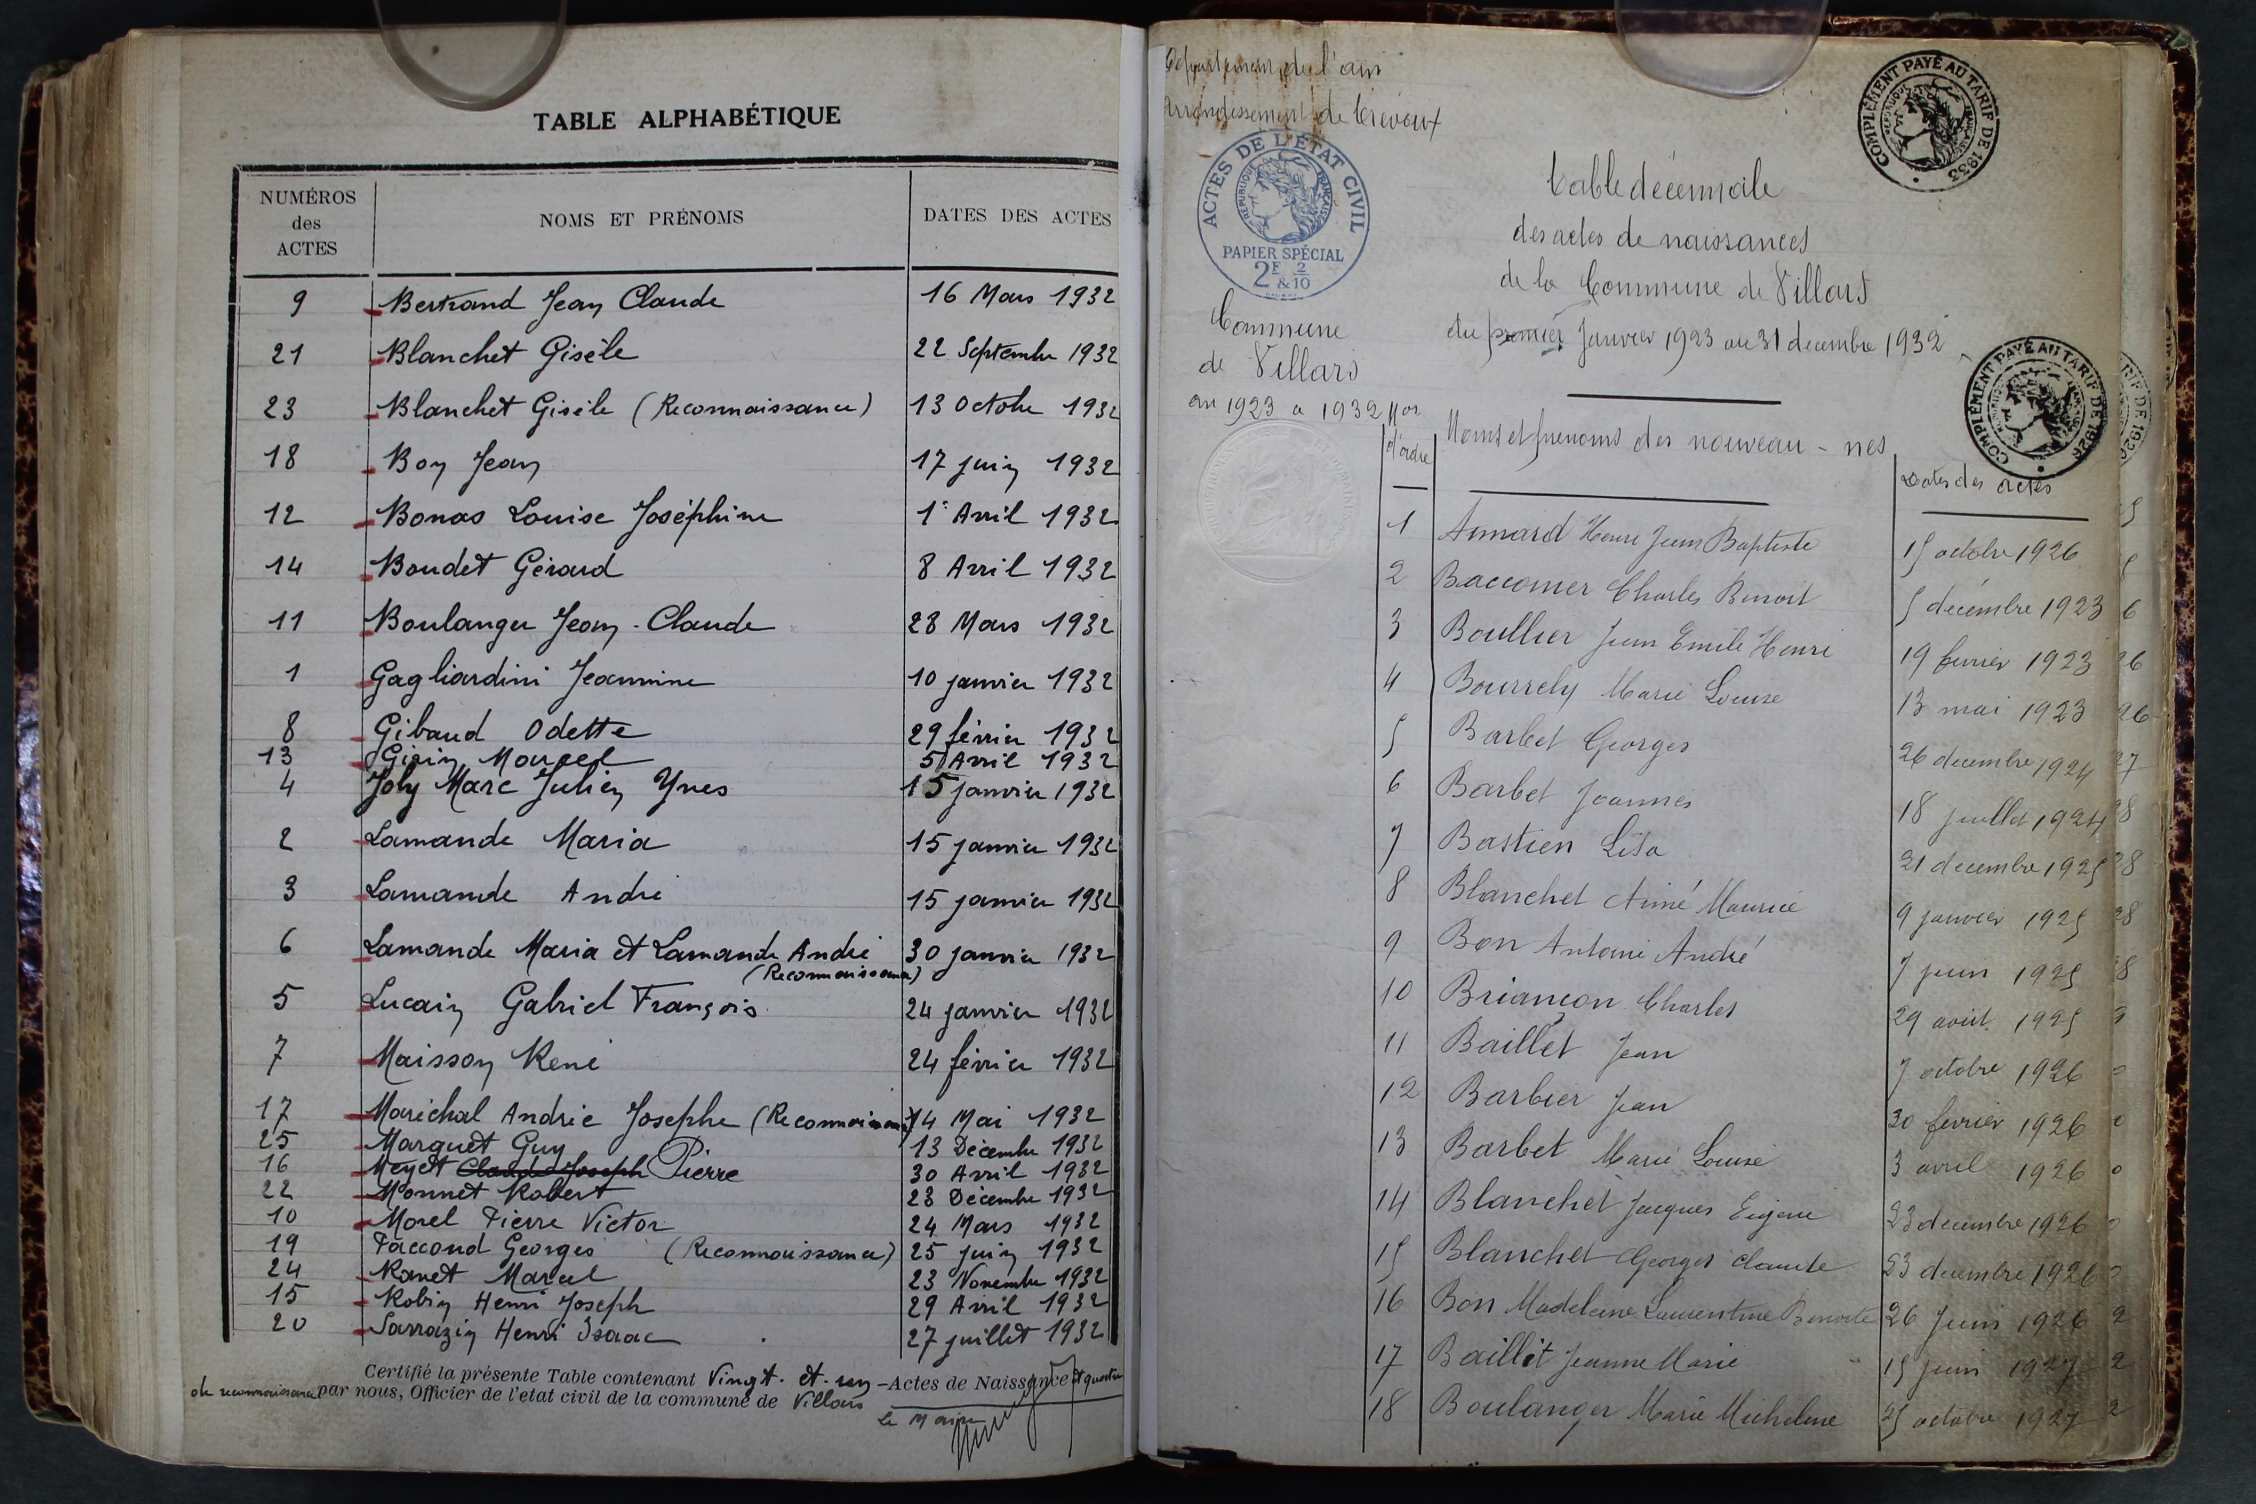 TABLE ALPHABÉTIQUE
NUMÉROS des ACTES NOMS ET PRÉNOMS DATES DES ACTES
9 Bertrand Jean Claude 16 Mars 1932
21 Blanchet Gisèle 22 Septembre 1932
23 Blanchet Gisèle (Reconnaissance) 13 Octobre 1932
18 Bon Jean 17 juin 1932
12 Bonas Louise Joséphine 1er Avril 1932
14 Boudet Gérard 8 Avril 1932
11 Boulanger Jean-Claude 28 Mars 1932
1 Gagliardini Jeannine 10 janvier 1932
8 Gibaud Odette 29 février 1932
13 Girin Marcel 5 Avril 1932
4 Joly Marc Julien Yves 15 janvier 1932
2 Lamande Maria 15 janvier 1932
3 Lamande André 15 janvier 1932
6 Lamande Maria et Lamande André 30 janvier 1932
(Reconnaissance)
5 Lucain Gabriel François 24 janvier 1932
7 Maisson René 24 février 1932
17 Maréchal Andrée Josephe (Reconnaissance) 14 Mai 1932
25 Marquet Guy 13 Décembre 1932
16 Meyet Claude Joseph Pierre 30 Avril 1932
22 Monnet Robert 23 Décembre 1932
10 Morel Pierre Victor 24 Mars 1932
19 Paccoud Georges (Reconnaissance) 25 juin 1932
24 Ranet Marcel 23 Novembre 1932
15 Robin Henri Joseph 29 Avril 1932
20 Sarrazin Henri Isaac 27 juillet 1932
Certifié la présente Table contenant Vingt-et-un -Actes de Naissance et quatre
de reconnaissance par nous, Officier de l'etat civil de la commune de Villars
Le Maire
Département de l'ain
Arrondissement de Trévoux
ACTES DE L'ÉTAT CIVIL
RÉPUBLIQUE FRANÇAISE
PAPIER SPÉCIAL
2F & 2/10
Commune
de Villars
an 1923 a 1932
COMPLÉMENT PAYÉ AU TARIF DE 1933
RÉPUBLIQUE FRANÇAISE
Table décennale
des actes de naissances
de la Commune de Villars
du premier Janvier 1923 au 31 decembre 1932
COMPLÉMENT PAYÉ AU TARIF DE 1926
Nos d'ordre Noms et prenoms des nouveau-nes Dates des actes
1 Aimard Henri Jean Baptiste 15 octobre 1926
2 Baccomer Charles Benoit 5 décembre 1923
3 Boullier Jean Emile Henri 19 fevrier 1923
4 Bourrely Marie Louise 13 mai 1923
5 Barbet Georges 26 decembre 1924
6 Barbet Joannes 18 juillet 1924
7 Bastien Lisa 21 decembre 1925
8 Blanchet Aimé Maurice 9 janvier 1925
9 Bon Antoine André 7 juin 1925
10 Briançon Charles 29 août 1925
11 Baillet Jean 7 octobre 1926
12 Barbier Jean 20 fevrier 1926
13 Barbet Marie Louise 3 avril 1926
14 Blanchet Jacques Eugène 23 decembre 1926
15 Blanchet Georges Claude 23 decembre 1926
16 Bon Madeleine Laurentine Benoite 26 Juin 1926
17 Baillet Jeanne Marie 15 juin 1927
18 Boulanger Marie Micheline 25 octobre 1927